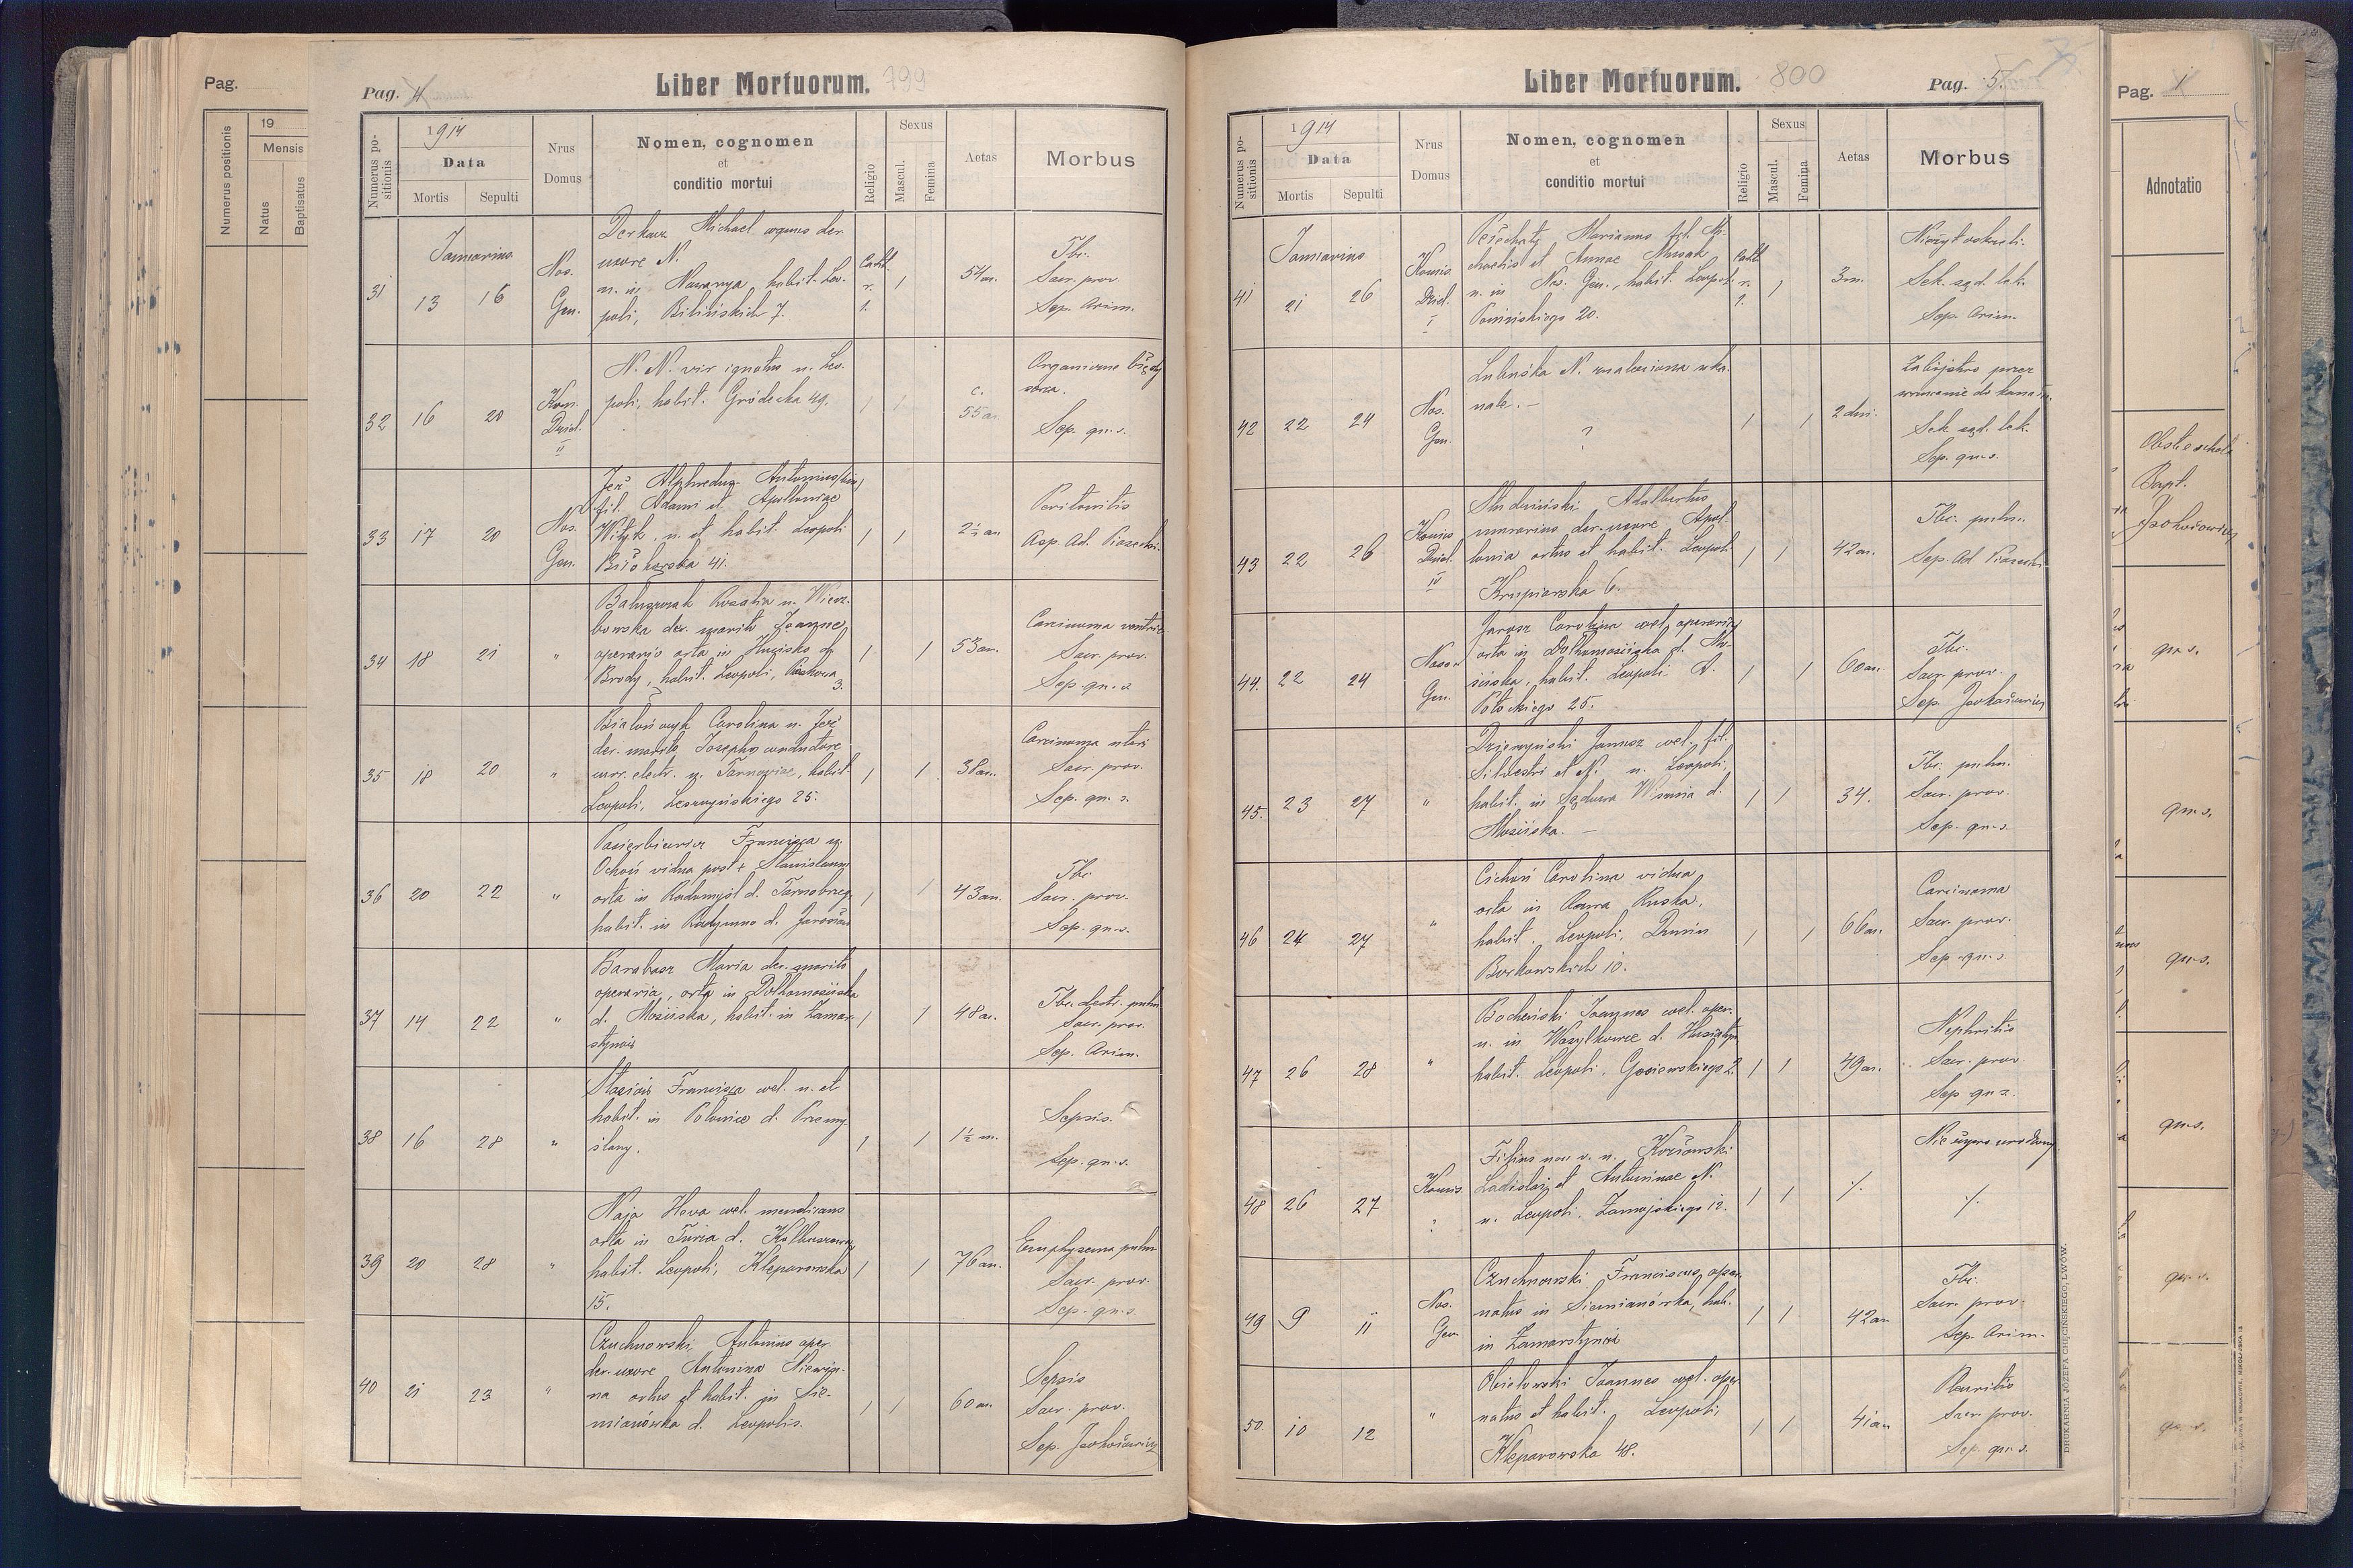 Pag.
19
Mensis
Numerus positionis
Natus
Baptisatus
Pag. 4
Liber Mortuorum. 799
Numerus positionis
1914
Data
Mortis
Sepulti
Nrus Domus
Nomen, cognomen
et
conditio mortui
Religio
Sexus
Mascul.
Femina
Aetas
Morbus
Januarius
31
13 16
Nos. Gen.
Michael
uxore N.
habit. Leo-
poli, Bilińskich 7.
Cath. r. l.
1
54 an.
Tbc.
Sacr. prov.
Sep. Arim.
32 16 20
Kom. Dziel. II
N. N. vir ignotus n. Leo-
poli, habit. Gródecka 49.
1 1
c. 55 a.
Organiczne błędy
serca.
Sep. qu. s.
33 17 20
Nos. Gen.
Jeż Alphredus Antonius
fil. Adami et Apolloniae
Wityk, n. et habit. Leopoli
41.
1 1
2½ an
Peritonitis
Ad. Piasecki
34 18 21 "
Rosalia n. Wierz-
bowska der. marito Joanne
operario orta in Hucisko d.
Brody, habit. Leopoli,
3.
1 1
53 an.
Carcinoma ventric.
Sacr. prov.
Sep. qu. s.
35 18 20 "
Carolina n. Jeż
der. marito Josepho conductore
curr. electr. n. Tarnoviae, habit.
Leopoli, Leszczyńskiego 25.
1 1
38 an.
Carcinoma uteri
Sacr. prov.
Sep. qu. s.
36 20 22 "
Pasierbiewicz Francisca n.
Ochoń vidua post + Stanislaum
orta in Radomyśl d. Tarnobrzeg,
habit. in Radymno d. Jarosław
1 1
43 an.
Tbc.
Sacr. prov.
Sep. qu. s.
37 14 22 "
Barabasz Maria der. marito
operaria, orta in Dołhomościska
d. Mościska, habit. in Zamar-
stynów
1 1
48 a.
Tbc. destr. pulm
Sacr. prov.
Sep. Arim.
38 16 28 "
Francisca coel. n. et
habit. in Połonice d. Przemy-
ślany.
1 1
1½ m.
Sepsis.
Sep. qu. s.
39 20 28 "
Naja Heva coel. mendicans
orta in Turza d. Kolbuszowa,
habit. Leopoli, Kleparowska
15.
1 1
76 an.
Emphysema pulm
Sacr. prov.
Sep. qu. s.
40 21 23 "
Czuchnowski Antonius oper.
der. uxore Antonina
na ortus et habit. in Sie-
mianówka d. Leopolis.
1 1
60 an
Sepsis
Sacr. prov.
Sep.
Liber Mortuorum. 800
Pag. 5.
Numerus positionis
1914
Data
Mortis
Sepulti
Nrus Domus
Nomen, cognomen
et
conditio mortui
Religio
Sexus
Mascul.
Femina
Aetas
Morbus
Januarius
41 21 26
Komis. Dziel. I
Marianus fil. Mi-
chaelis et Annae Musak
n. in Nos. Gen., habit. Leopoli
Ponińskiego 20.
Cath. r. l.
1
3 m.
Nieżyt oskrzeli.
Sek. sąd. lek.
Sep. Arim.
42 22 24
Nos. Gen.
N. znaleziona w ka-
nale. —
?
1 1
2 dni.
Zabójstwo przez
wrzucenie do kanału.
Sek. sąd. lek.
Sep. qu. s.
43 22 26
Komis. Dziel. IV
Adalbertus
murarius der. uxore Apol-
lonia ortus et habit. Leopoli
Krupiarska 6.
1 1
42 an.
Tbc. pulm.
Sep. Ad. Piasecki
44. 22 24
Nosoc. Gen.
Jarosz Carolina coel. operaria
orta in Dołhomościska d. Mo-
ściska, habit. Leopoli A.
Potockiego 25.
1 1
60 an.
Tbc.
Sacr. prov.
Sep.
45. 23 27 "
coel. fil.
Silvestri et N. n. Leopoli,
habit. in Sądowa Wisznia d.
Mościska. —
1 1
34.
Tbc. pulm.
Sacr. prov.
Sep. qu. s.
46 24 27 "
Cichoń Carolina vidua,
orta in Rawa Ruska,
habit. Leopoli, Dunin
Borkowskich 10.
1 1
66 an.
Carcinoma
Sacr. prov.
Sep. qu. s.
47 26 28 "
Bocheński Joannes coel. oper.
n. in Wasylkowce d. Husiatyn
habit. Leopoli, Gosiewskiego 2.
1 1
49 an.
Nephritis
Sacr. prov.
Sep. qu. s.
48 26 27
Komis. ?
Filius non v. n.
Ladislai et Antoninae N.
n. Leopoli, Zamojskiego 12.
1 1
./.
Nieżywo urodzony
./.
49 9 11
Nos. Gen.
Czuchnowski Franciscus, oper.
natus in Siemianówka, hab.
in Zamarstynów
1 1
42 an
Tbc.
Sacr. prov.
Sep. Arim.
50. 10 12 "
Joannes coel. oper.
natus et habit. Leopoli,
Kleparowska 48.
1 1
41 an
Pleuritis
Sacr. prov.
Sep. qu. s.
DRUKARNIA JÓZEFA CHĘCIŃSKIEGO, LWÓW.
Pag. 1
Adnotatio
Bapt.
qu. s.
qu. s.
qu. s.
qu. s.
qu. s.
qu. s.